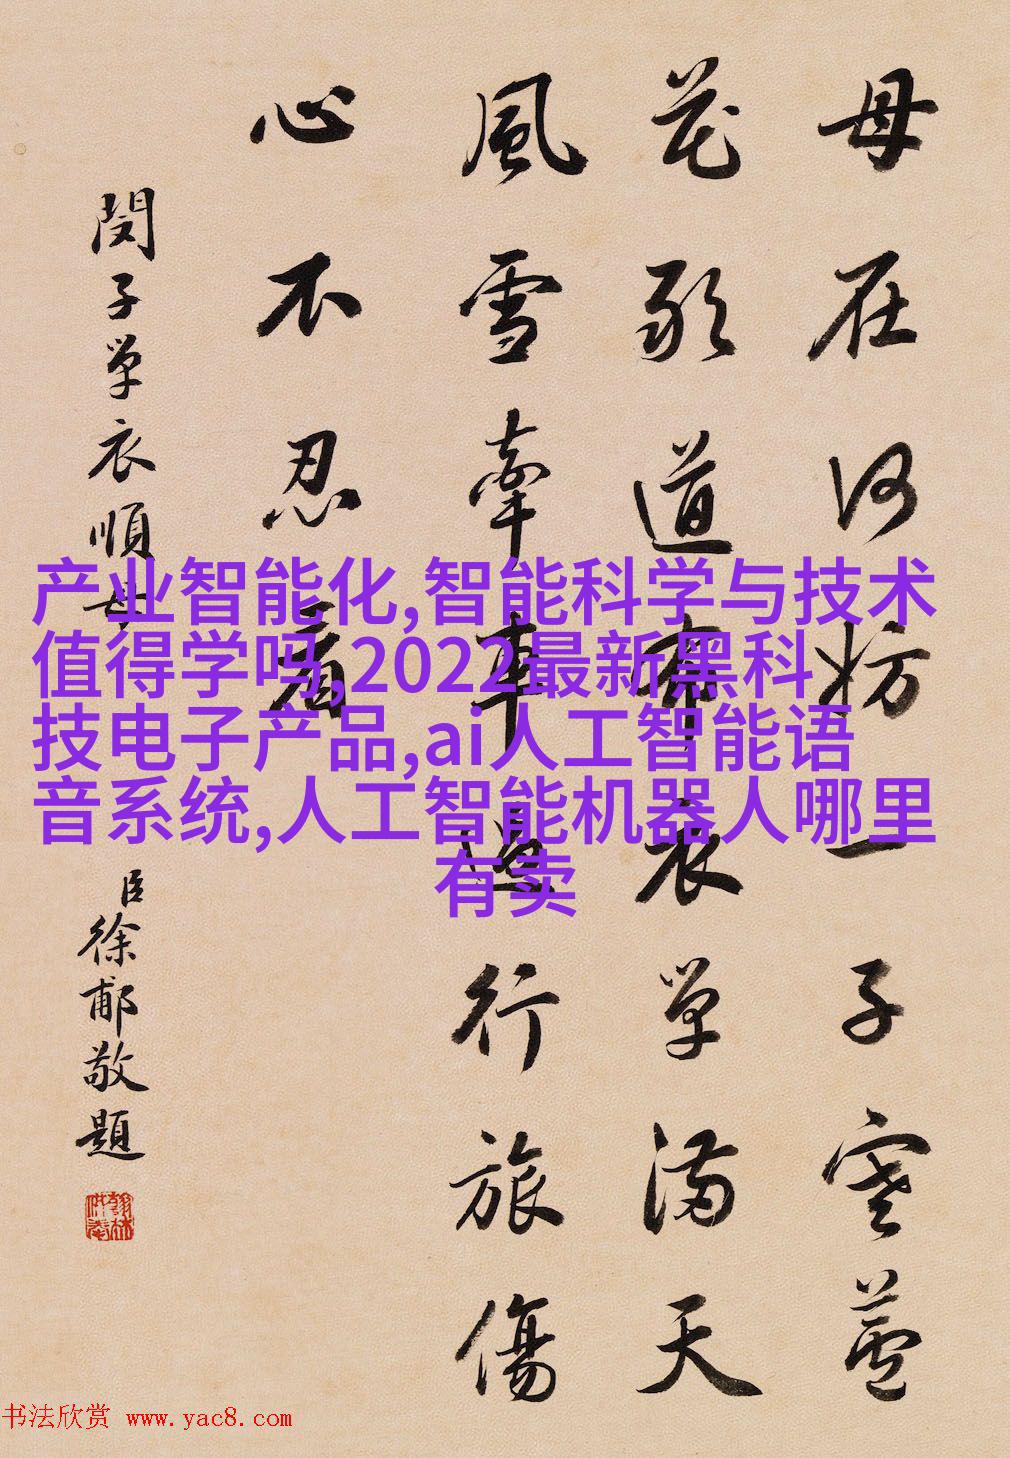 母在何妨一子寒蘆
花敢道布衣單滿天
風雪牽車行旅傷
心不忍看
閔子單衣順母
臣徐郙敬題
产业智能化,智能科学与技术
值得学吗,2022最新黑科
技电子产品,ai人工智能语
音系统,人工智能机器人哪里
有卖
书法欣赏 www.yac8.com